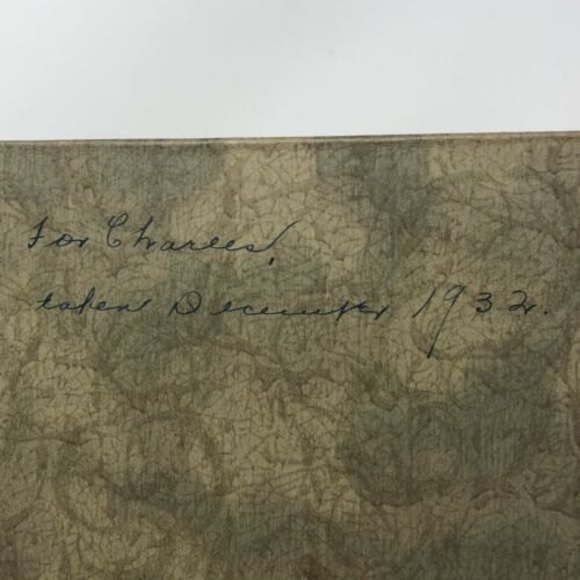 For Charles!
taken December 1932.